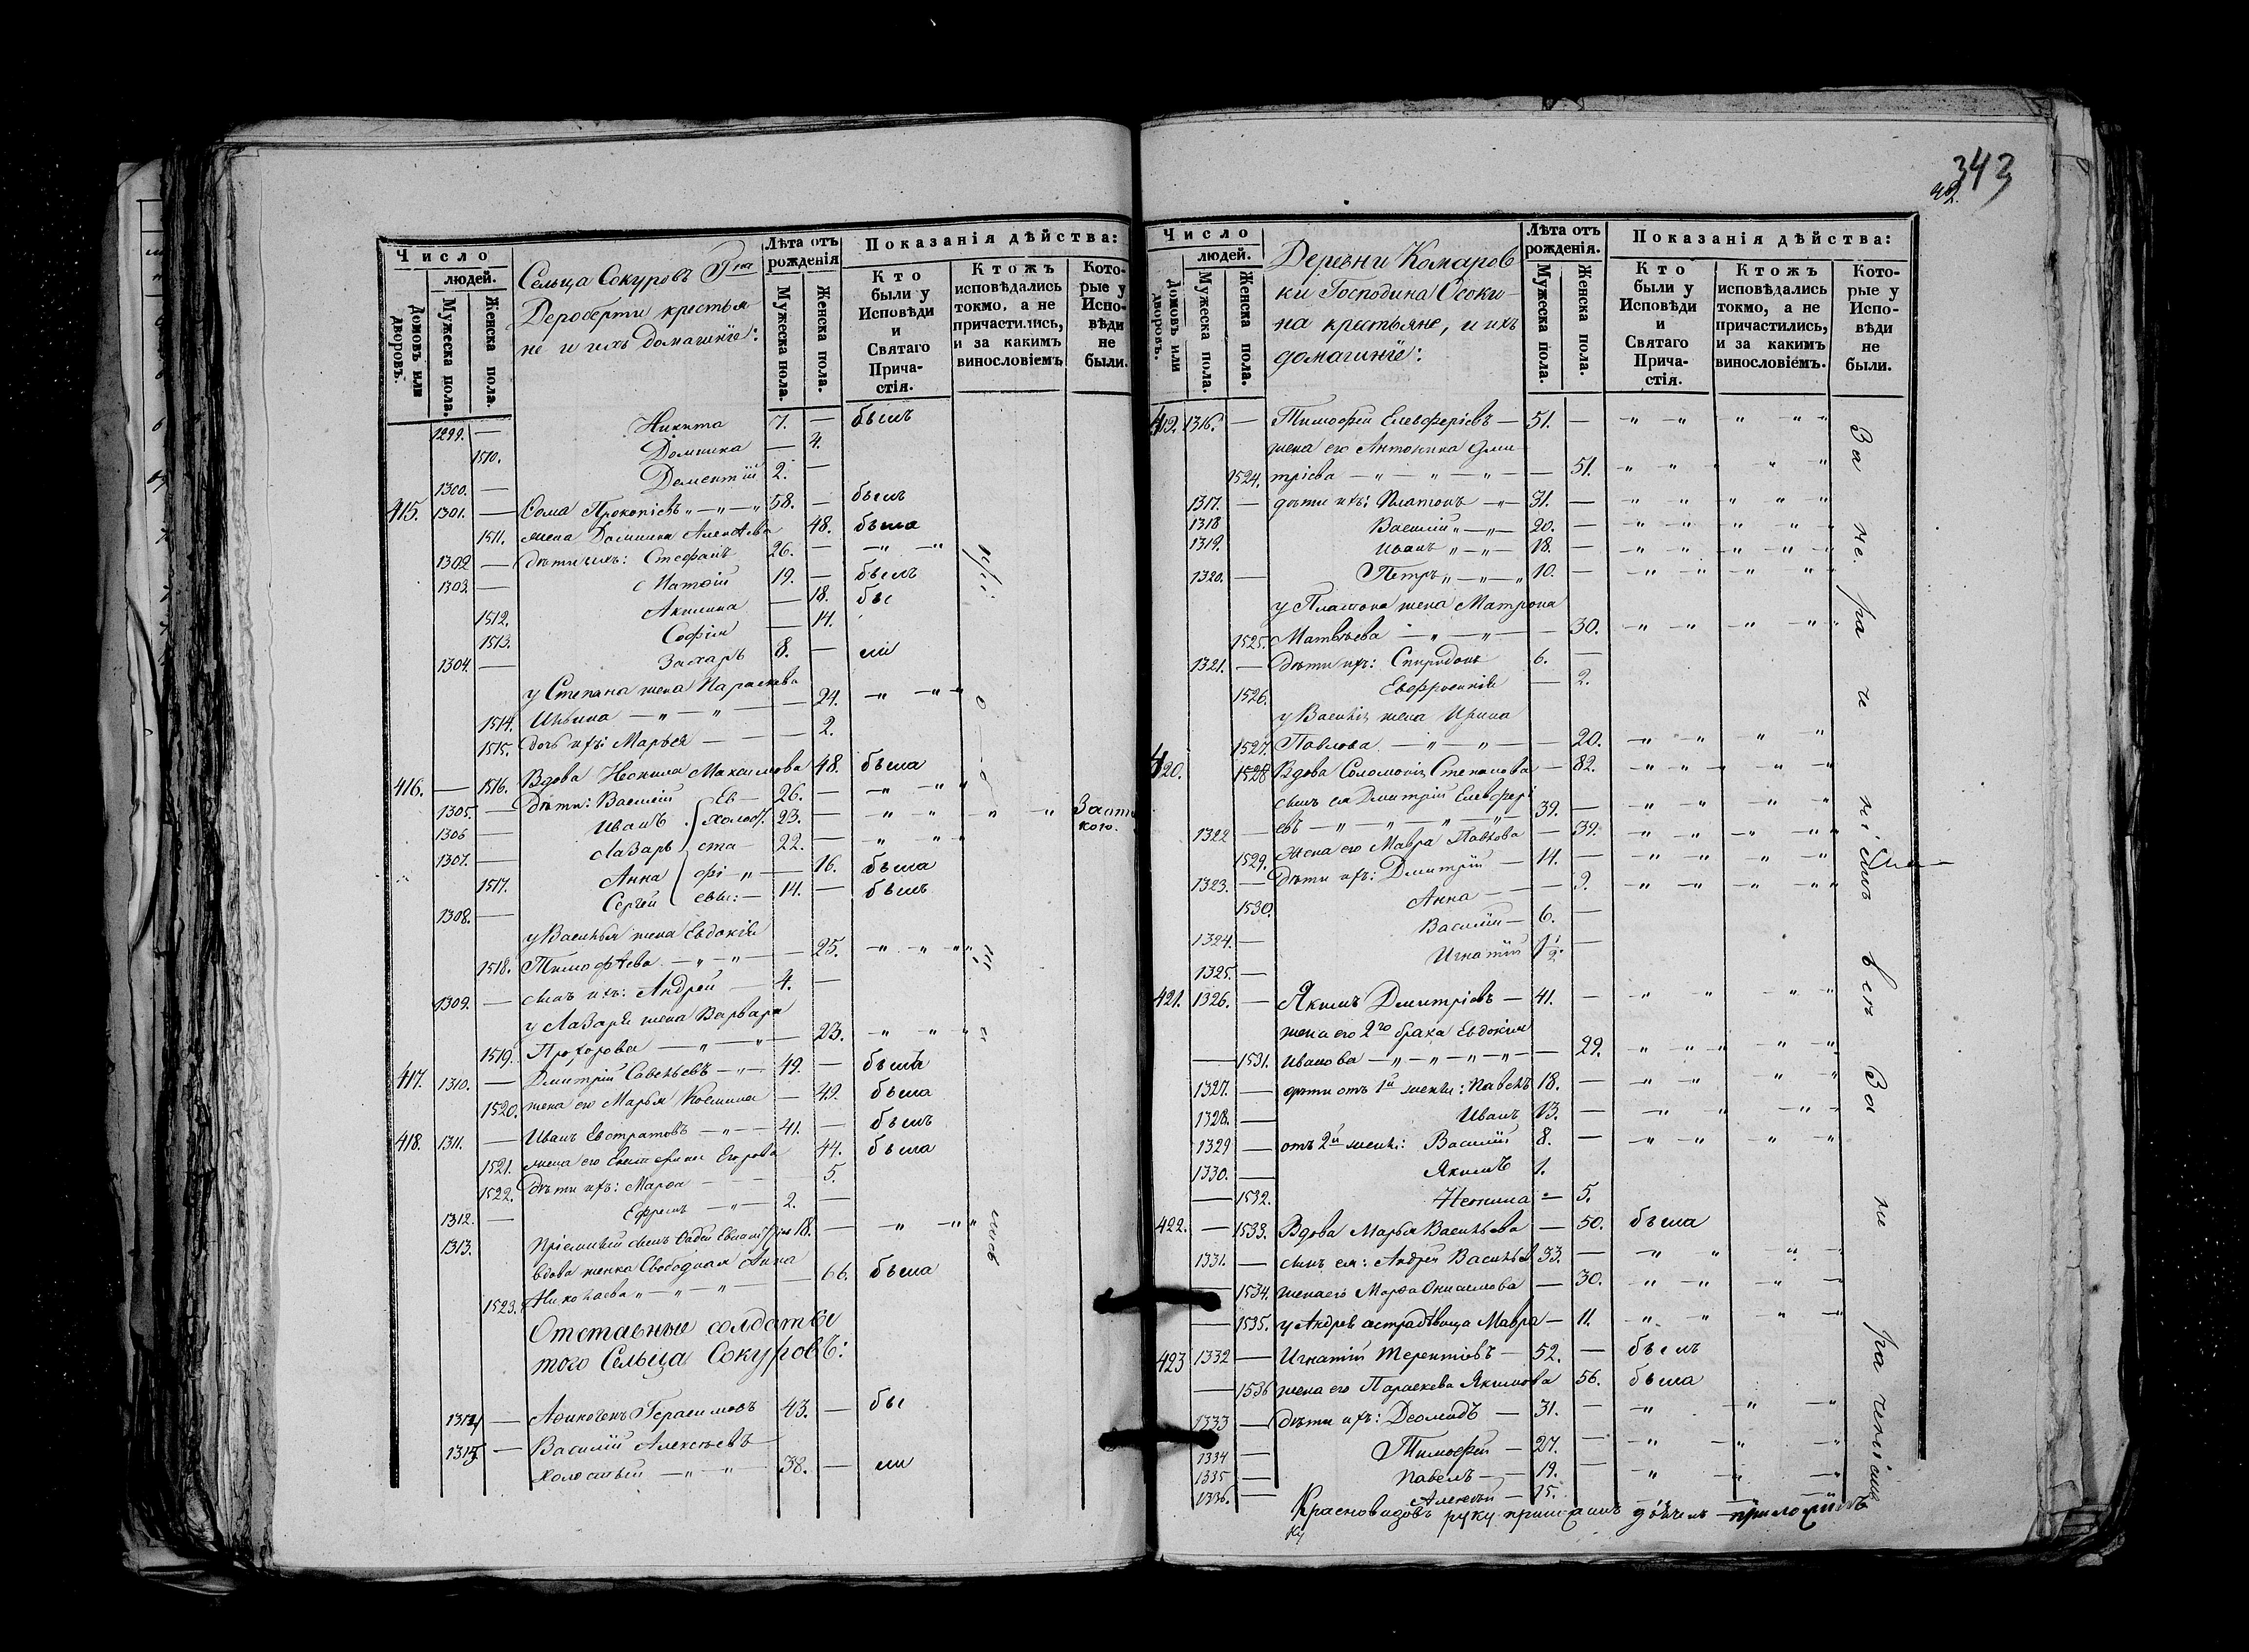 343
42.
Число
людей.
Домовъ или дворовъ.
Мужеска пола.
Женска пола.
Сельца Сокуровъ Гна
Дероберти крестья
не и ихъ домашніе:
Лѣта отъ рожденія
Мужеска пола.
Женска пола.
Показанія дѣйства:
Кто были у Исповѣди и Святаго Причастія.
Ктожъ исповѣдались токмо, а не причастились, и за какимъ винословіемъ
Которые у Исповѣди не были.
1299. — Никита 7. — былъ
1510. Домника — 4.
1300. — Дементій 2. —
415. 1301. — Ѳома Прокопіевъ 58. — былъ
1511. жена Домника Алексѣева 48. была
1302 — дѣти ихъ: Стефанъ 26. —
1303. — Матвій 19. — былъ
1512. Акилина — 18. бы
1513. Софія — 14.
1304. — Захаръ 8. — ли
у Степана жена Параскева
1514. Ильина — 24.
1515. дочь ихъ: Марья — 2.
416. — 1516. Вдова Неонила Максимова 48. была
1305. — Дѣти: Василій Ев 26. —
1306 — Иванъ холост. 23. —
1307. — Лазарь ста 22. —
1517. Анна фі — 16. была
1308. — Сергей евы: 14. — былъ
у Василья жена Евдокія
1518. Тимофѣева — 25.
1309. — сынъ ихъ: Андрей 4. —
у Лазаря жена Варвара
1519. Прохорова — 23.
417. 1310. — Дмитрій Савельевъ 49. — былъ
1520. жена его Марья Козмина — 49. была
418. 1311. — Иванъ Евстратовъ 41. — былъ
1521. жена его Екатерина Егорова 44. была
1522. Дѣти ихъ: Марѳа 5.
1312. — Ефремъ 2. —
1313. Пріемный сынъ Фадей 18. —
вдова женка Свободная Анна
1523. Николаева — 66. была
Отставные солдаты
того Сельца Сокуровъ:
1314 — Аѳиногенъ Герасимовъ 43. — бы
1315. — Василій Алексѣевъ
холостый 38. — ли
Число
людей.
Домовъ или дворовъ.
Мужеска пола.
Женска пола.
Деревни Комаров
ки Господина Осоки
на крестьяне, и ихъ
домашніе:
Лѣта отъ рожденія.
Мужеска пола.
Женска пола.
Показанія дѣйства:
Кто были у Исповѣди и Святаго Причастія.
Ктожъ исповѣдались токмо, а не причастились, и за какимъ винословіемъ.
Которые у Исповѣди не были.
419. 1316. — Тимоѳей Елевферіевъ — 51. —
жена его Антонина Дми
1524. тріева — 51.
1317. — дѣти ихъ: Платонъ 31. —
1318 Василій 20. —
1319. Иванъ 18. —
1320. — Петръ 10. —
у Платона жена Матрона
1525. Матвѣева — 30.
1321. — дѣти ихъ: Спиридонъ 6. —
1526. Евфросинія — 2.
у Василія жена Ирина
1527. Павлова — 20.
420. 1528 Вдова Соломонія Степанова — 82.
сынъ ея Дмитрій Елевфері
1322 — евъ 39. —
1529. Жена его Мавра Павлова — 39.
1323. — Дѣти ихъ: Дмитрій — 14. —
1530. Анна — 9.
1324. — Василій — 6. —
1325. — Игнатій 1 1/2. —
421. 1326. — Якимъ Дмитріевъ — 41. —
жена его 2го брака Евдокія
— 1531. Иванова — 29.
1327. — дѣти отъ 1й жены: Павелъ 18. —
1328. — Иванъ 13. —
1329 — отъ 2й жены: Василій 8. —
1330. — Якимъ 1.
— 1532. Неонила — 5.
422. — 1533. Вдова Марья Васильева — 50. была
1331. — сынъ ея: Андрей Васильев 33. —
1534. жена его Марѳа Онисимова — 30.
— 1535. у Андрея Мавра — 11.
423 1332 — Игнатій Терентіевъ — 52. — былъ
— 1536 жена его Параскева Якимова 56. была
1333 — Дѣти ихъ: Деомидъ — 31. —
1334 — Тимофей — 27. —
1335 — Павелъ — 19. —
1336. — Алексѣй — 15.
За не ра че ні емъ
За не ра ченіемъ
Красновидовъ руку приложилъ